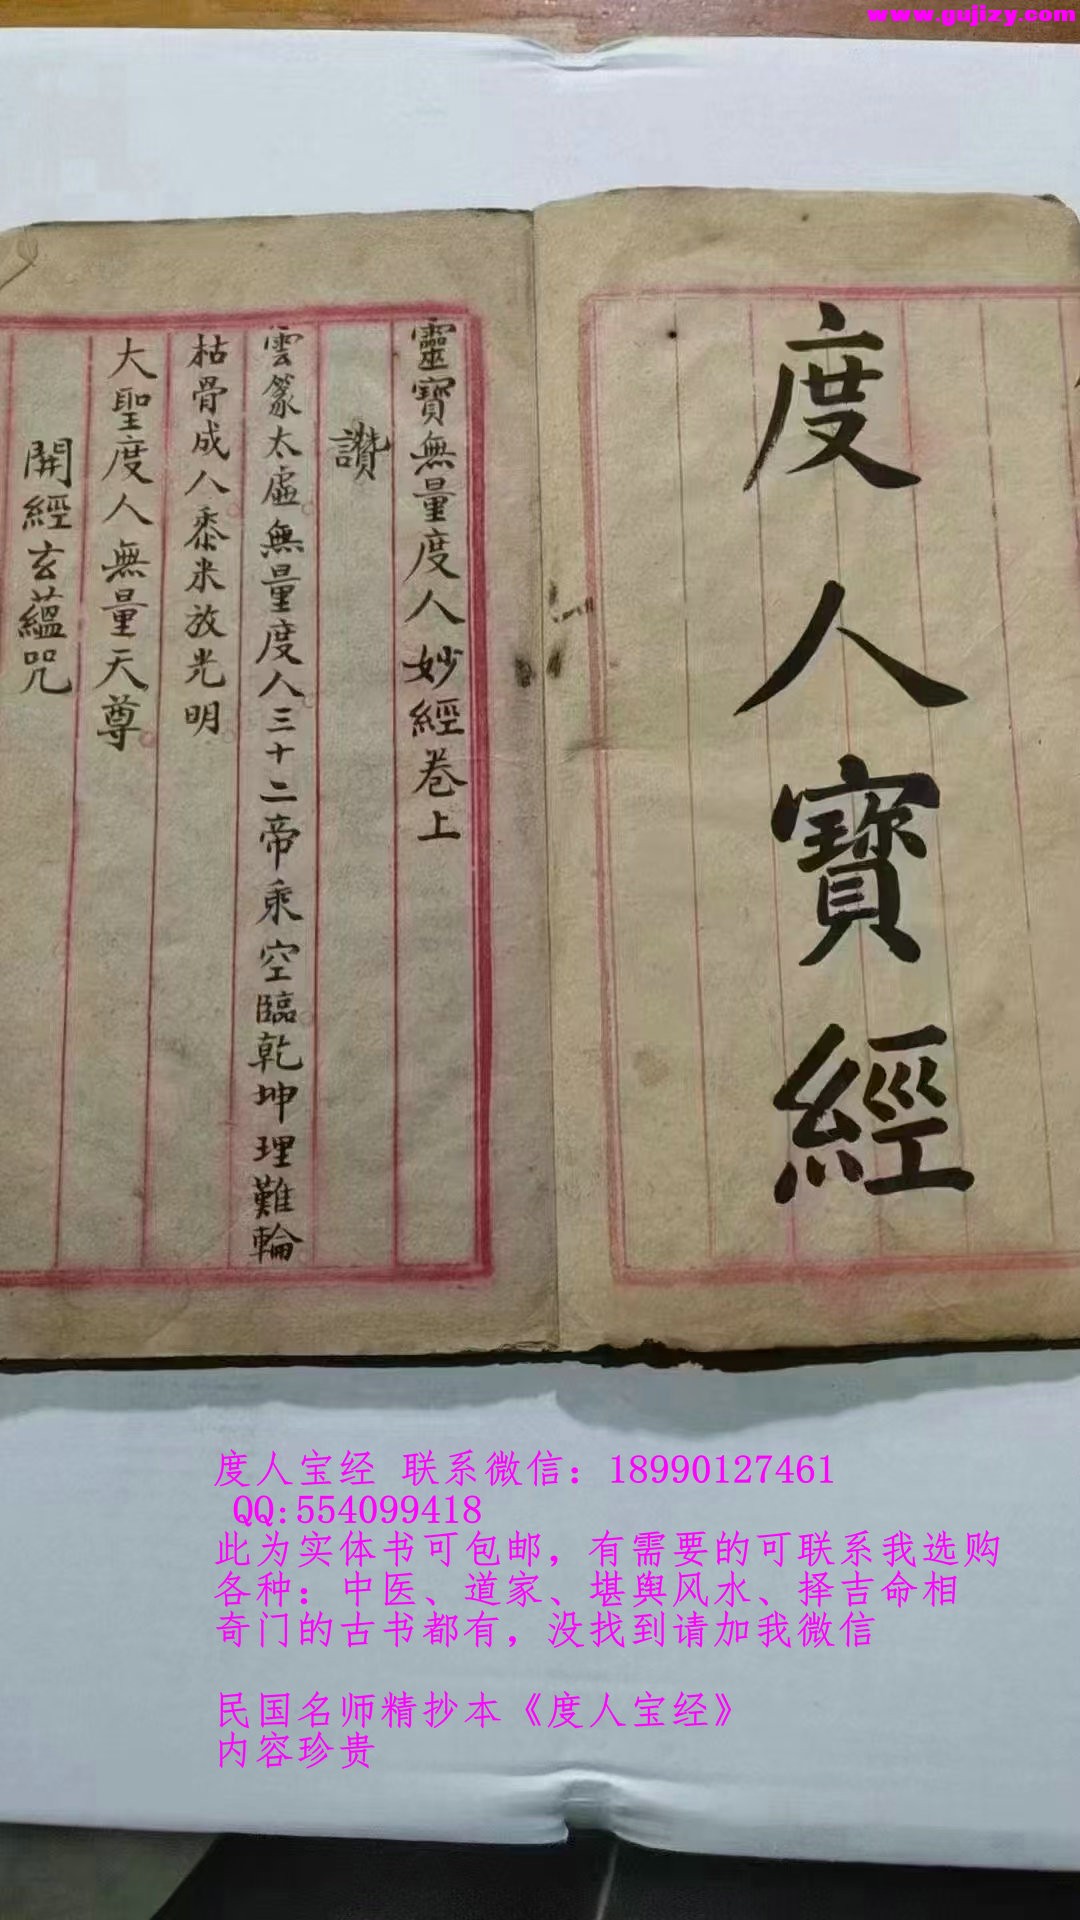 www.gujizy.com
度人寶經
靈寶無量度人妙經卷上
讚
雲篆太虛無量度人三十二帝乘空臨乾坤理難輪
枯骨成人黍米放光明
大聖度人無量天尊
開經玄蘊咒
度人宝经 联系微信：18990127461
QQ:554099418
此为实体书可包邮，有需要的可联系我选购
各种：中医、道家、堪舆风水、择吉命相
奇门的古书都有，没找到请加我微信
民国名师精抄本《度人宝经》
内容珍贵